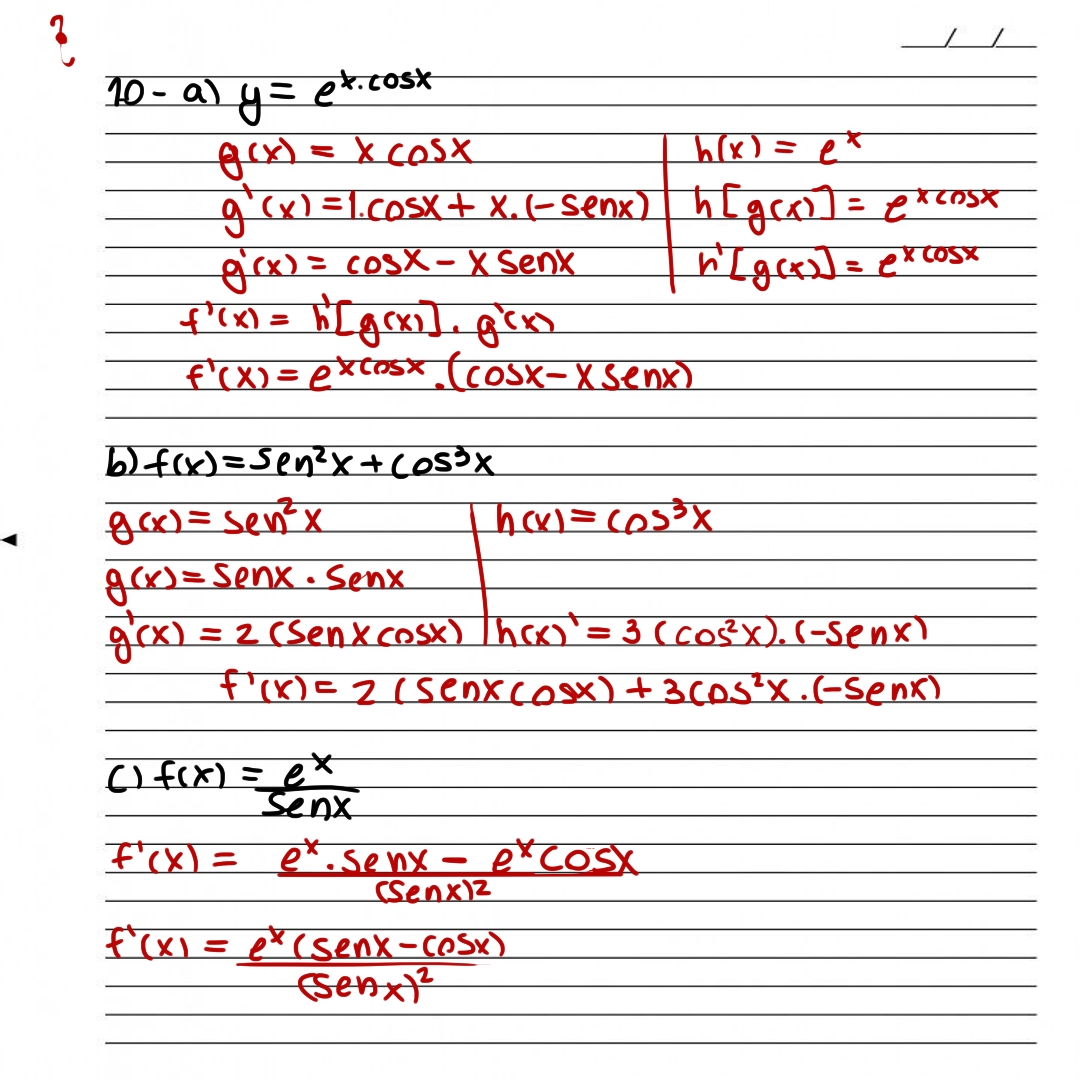 __/__/__
10- a) y = e^x.cosx
g(x) = x cosx | h(x) = e^x
g'(x) = 1.cosx + x.(-senx) | h[g(x)] = e^xcosx
g'(x) = cosx - x senx | h'[g(x)] = e^xcosx
f'(x) = h'[g(x)] . g'(x)
f'(x) = e^xcosx .(cosx - x senx)
b) f(x) = sen²x + cos³x
g(x) = sen²x | h(x) = cos³x
g(x) = senx . senx
g'(x) = 2 (senx cosx) | h(x)' = 3 (cos²x).(-senx)
f'(x) = 2 (senx cosx) + 3cos²x.(-senx)
c) f(x) = e^x
senx
f'(x) = e^x.senx - e^x cosx
(senx)²
f'(x) = e^x (senx - cosx)
(senx)²